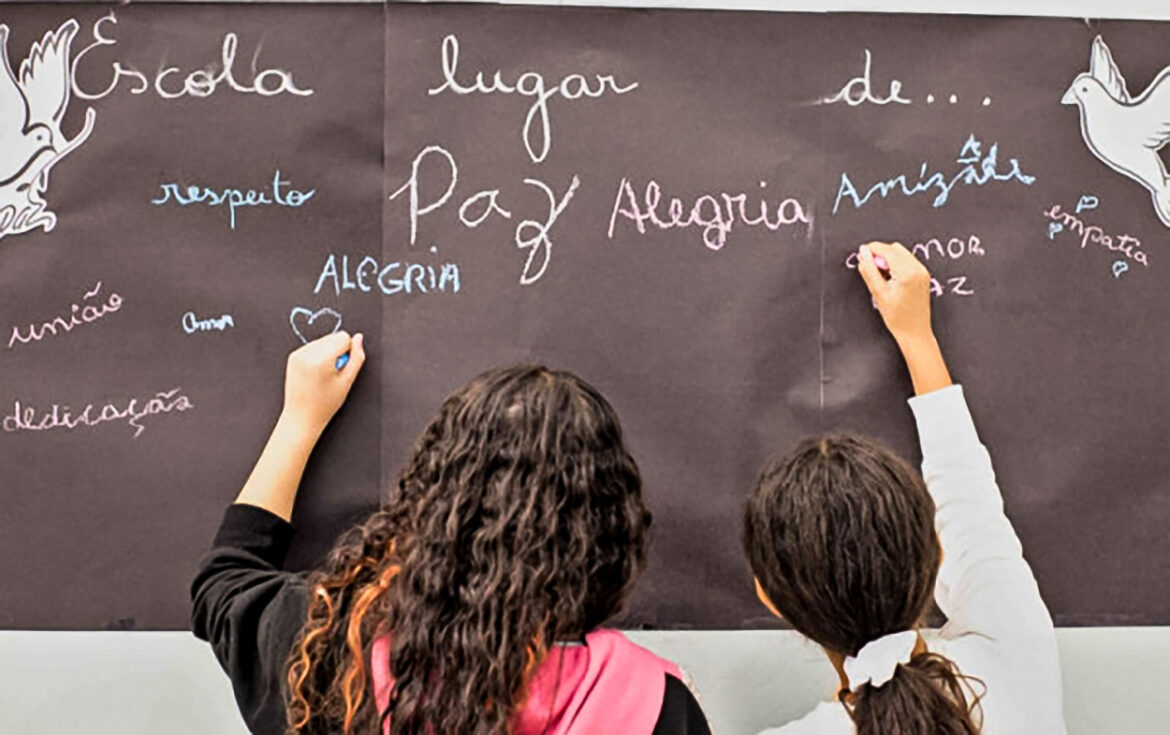 Escola lugar de...
respeito Paz Alegria Amizade empatia
ALEGRIA
união amor
dedicação